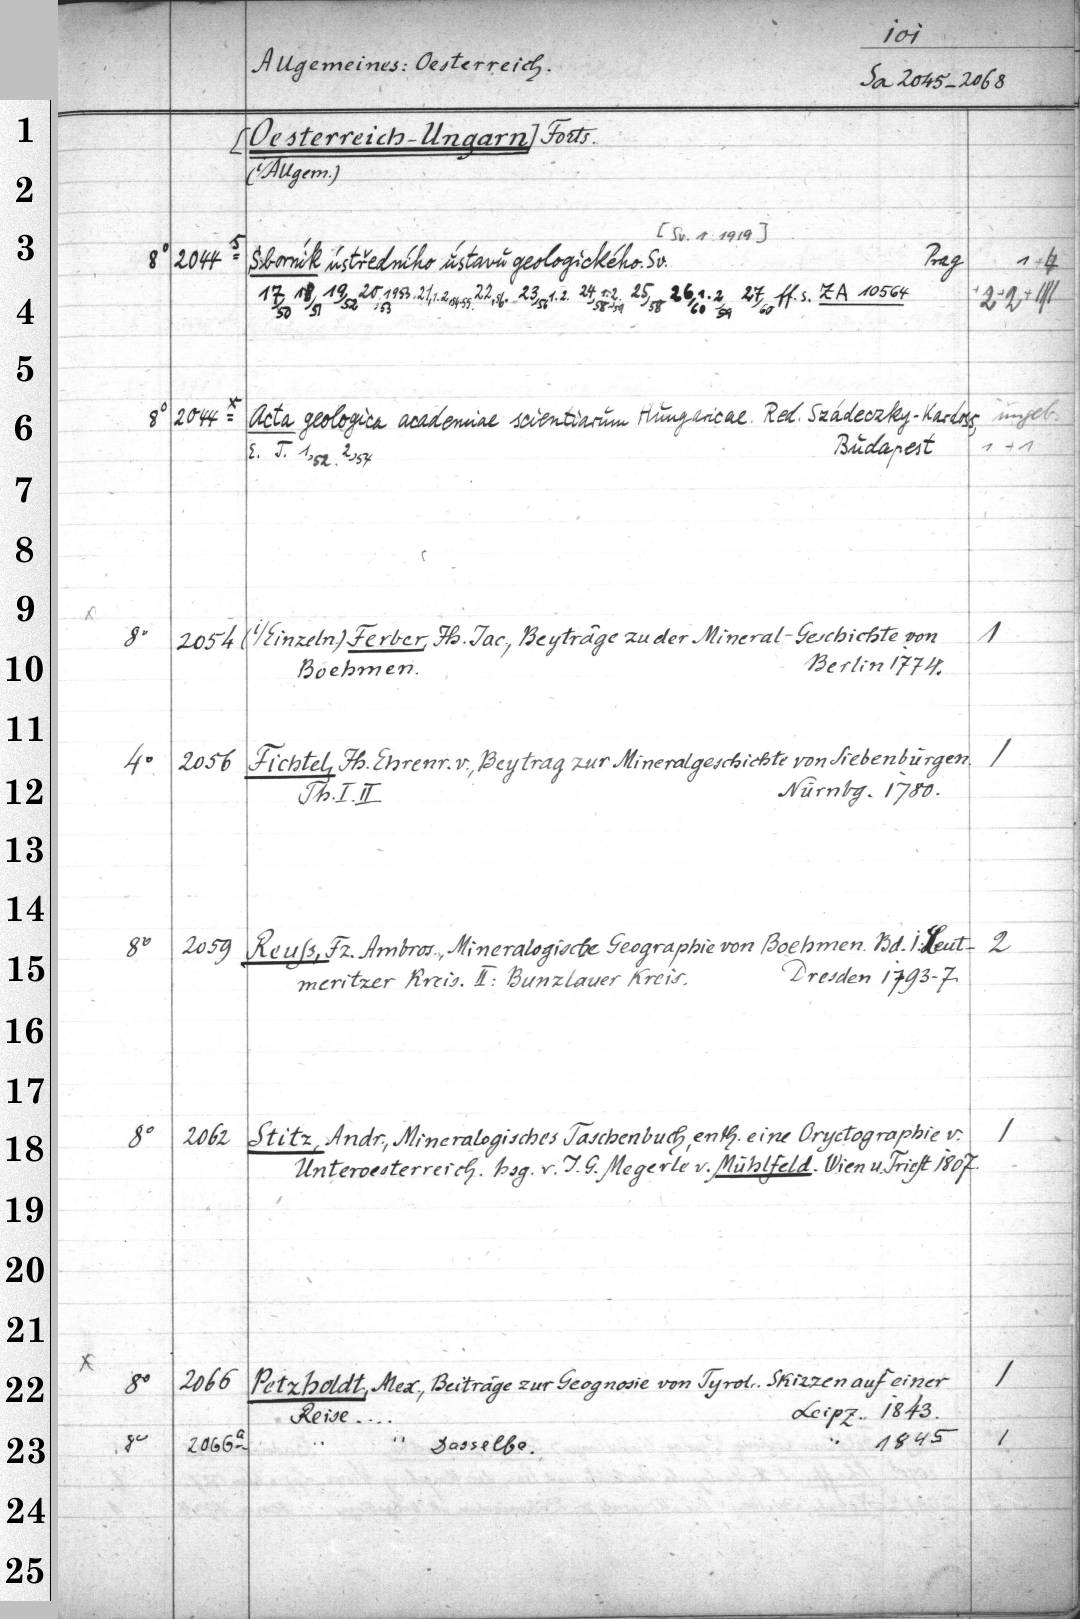 101
Allgemeines: Oesterreich.
Sa 2045-2068
1
[Oesterreich-Ungarn] Forts.
2
(Allgem.)
[Sv. 1 1919]
3
8° 2044 5 Sborník ústředního ústavu geologického. Sv. Prag 1+4
4
17/50 18/51 19/52 20,1953 21,1.2, 54-55. 22, 56. 23/56 1.2. 24 1.2. 58-59 25/58 26,1.2/60 59 27/60 ff. s. ZA 10564
5
6
8° 2044 x Acta geologica academiae scientiarum Hungaricae. Red. Szádeczky-Kardoss, ungeb.
E. T. 1,52. 2,54 Budapest 1+1
7
8
9
8° 2054 (Einzeln) Ferber, Jh. Jac., Beyträge zu der Mineral-Geschichte von 1
10
Boehmen. Berlin 1774.
11
4° 2056 Fichtel, Jh. Ehrenr. v., Beytrag zur Mineralgeschichte von Siebenbürgen. 1
12
Th. I. II Nürnbg. 1780.
13
14
8° 2059 Reuß, Fz. Ambros., Mineralogische Geographie von Boehmen. Bd. I: Leut- 2
15
meritzer Kreis. II: Bunzlauer Kreis. Dresden 1793-7.
16
17
8° 2062 Stitz, Andr., Mineralogisches Taschenbuch, enth. eine Oryctographie v. 1
18
Unteroesterreich. hsg. v. J. G. Megerle v. Mühlfeld. Wien u. Triest 1807.
19
20
21
x
22
8° 2066 Petzholdt, Alex., Beiträge zur Geognosie von Tyrol. Skizzen auf einer 1
Reise .... Leipz. 1843.
23
8° 2066a " " Dasselbe. " 1845 1
24
25